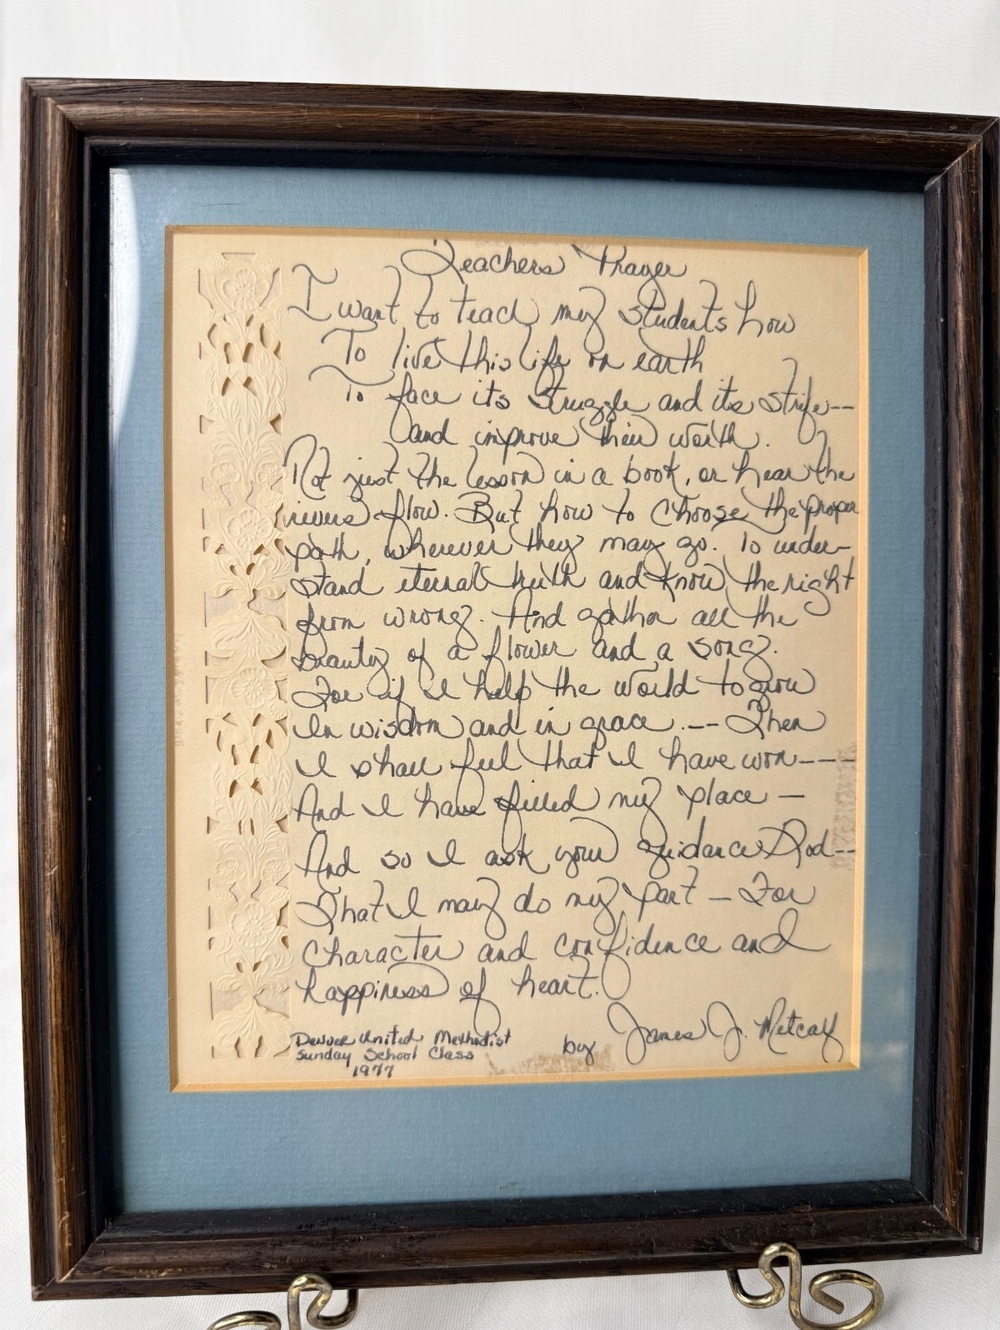 Teachers Prayer
I want to teach my students how
To live this life on earth
To face its struggle and its strife--
and improve their worth.
Not just the lesson in a book, or hear the
rivers flow. But how to choose the proper
path, wherever they may go. To under-
stand eternal truth and know the right
from wrong. And gather all the
beauty of a flower and a song.
For if I help the world to grow
In wisdom and in grace.-- Then
I shall feel that I have won---
And I have filled my place -
And so I ask your guidance God--
That I may do my part - For
character and confidence and
happiness of heart.
by James J. Metcalf
Denver United Methodist
Sunday School Class
1977